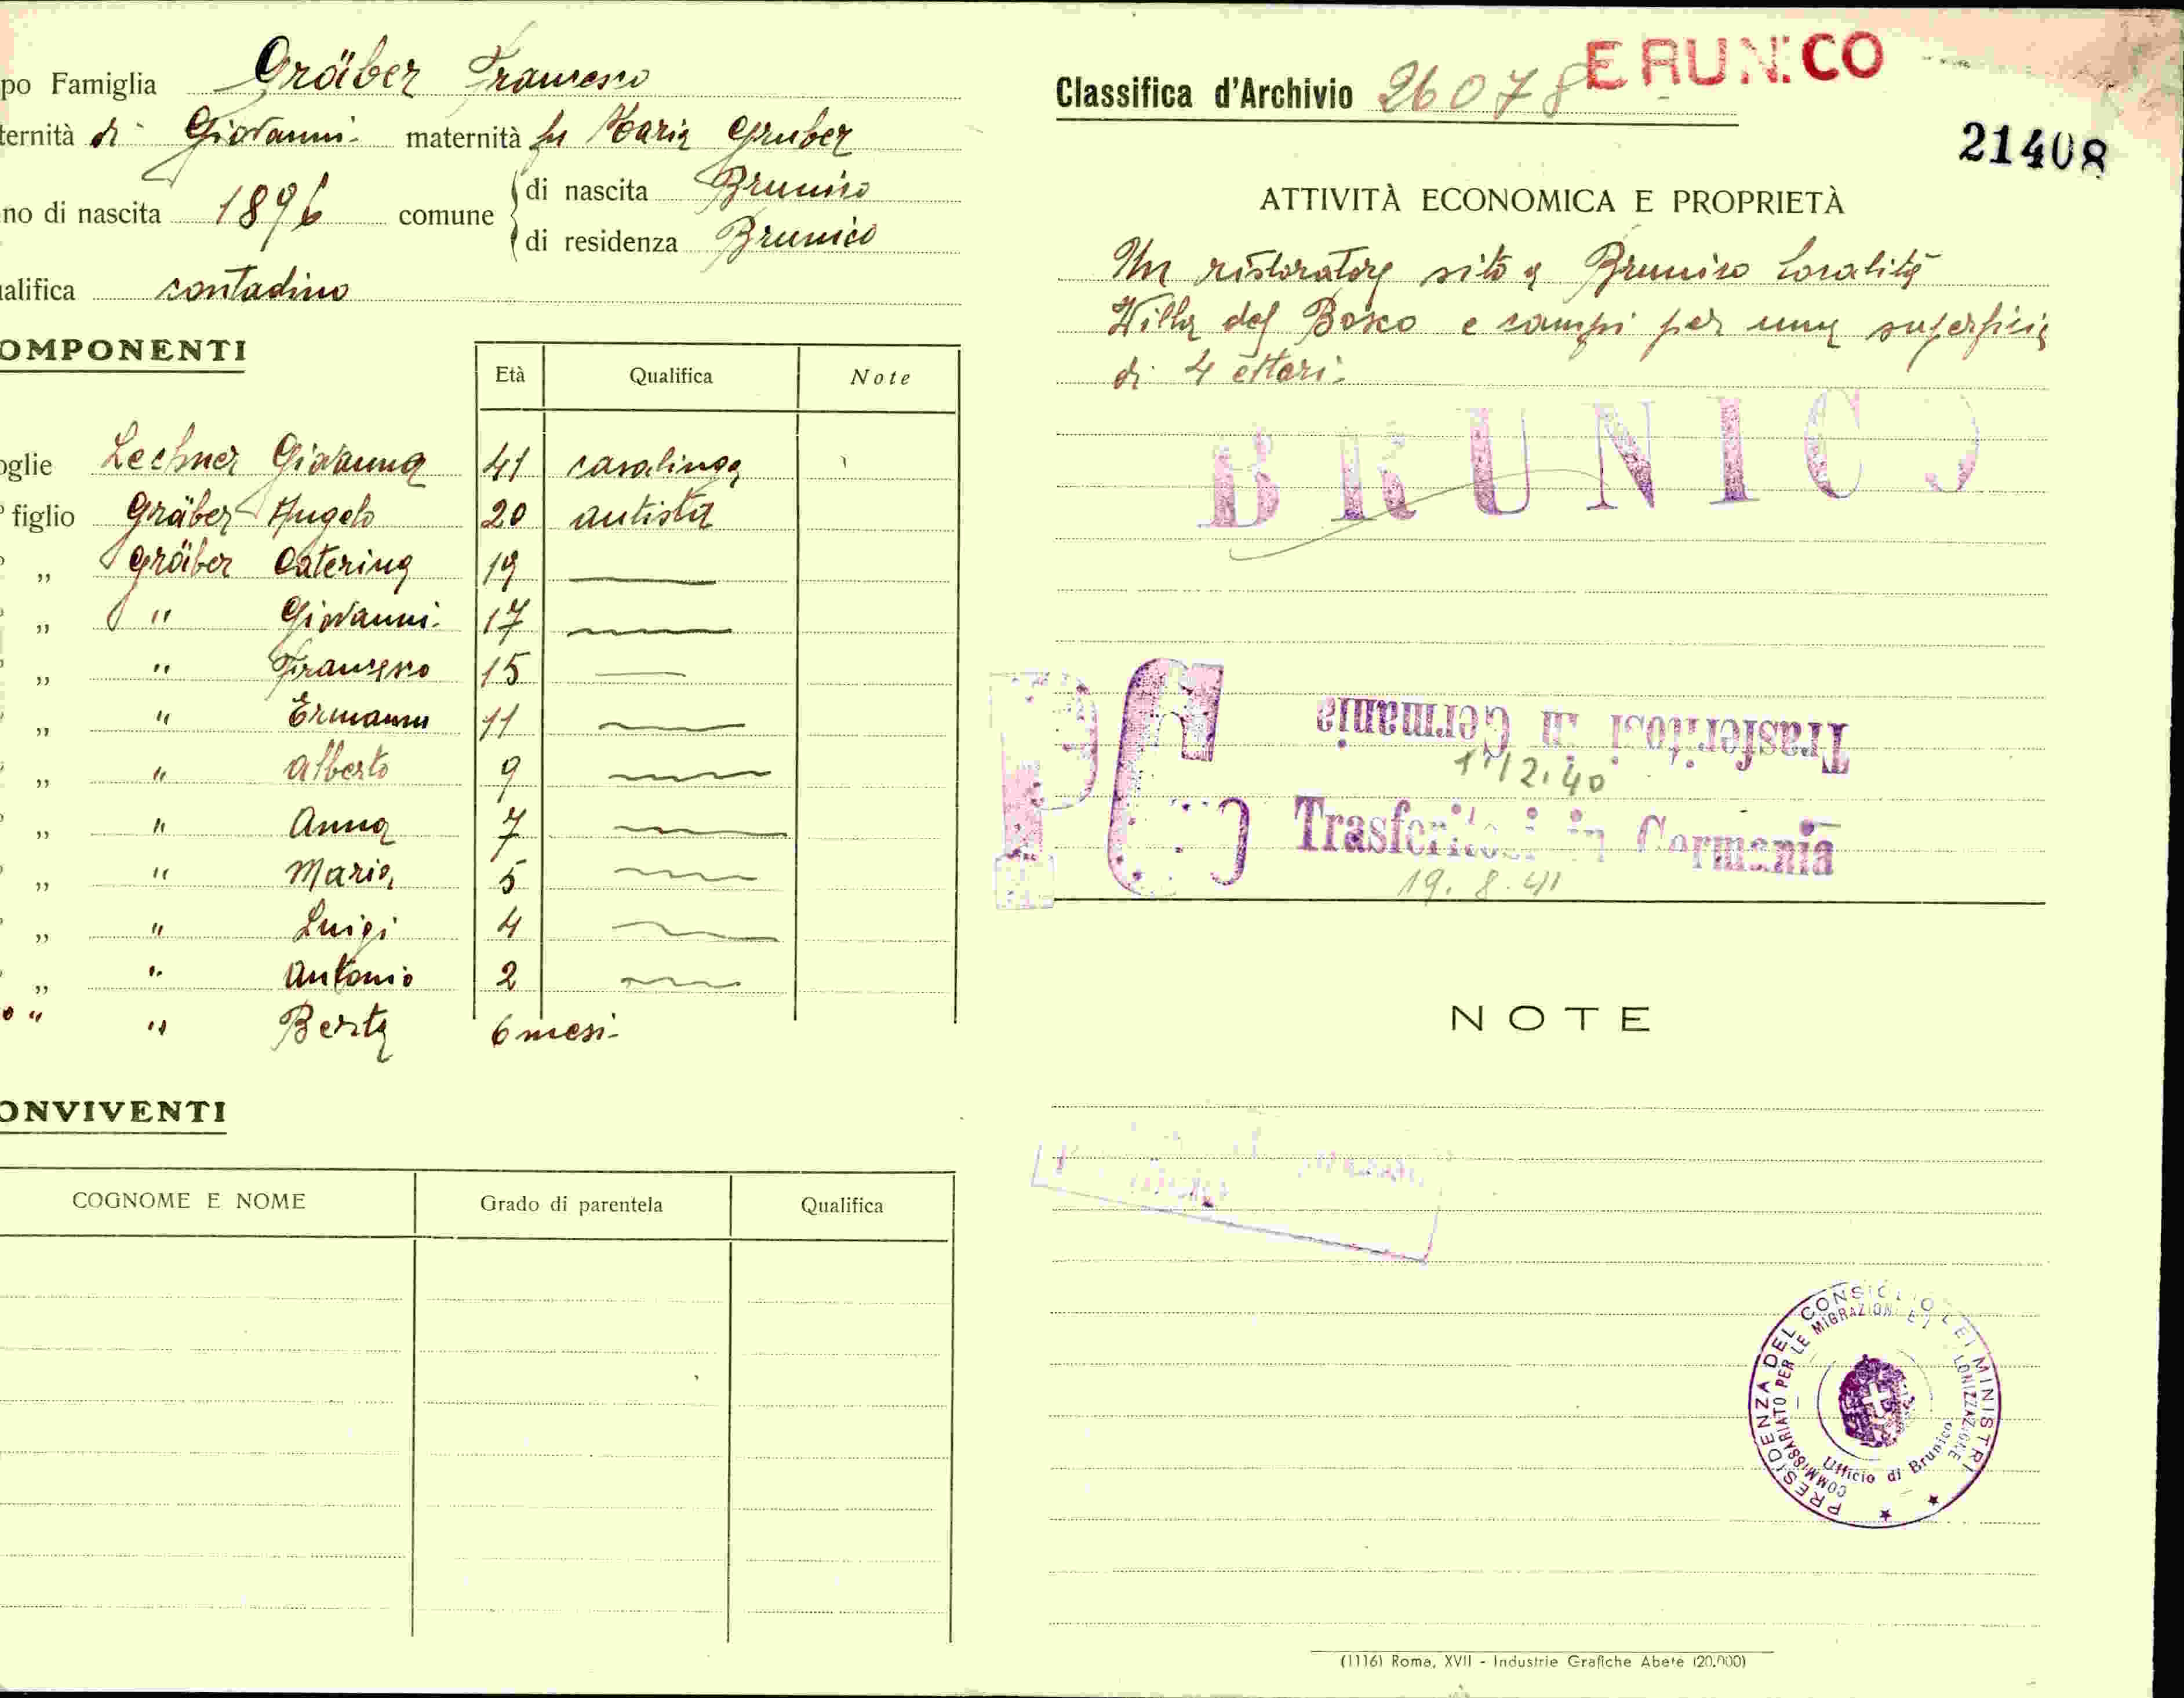 po Famiglia Gräber Francesco
ternità di Giovanni maternità fu Maria Gruber
no di nascita 1896 comune di nascita Brunico
di residenza Brunico
alifica contadino
OMPONENTI
Età Qualifica Note
oglie Lechner Giovanna 41 casalinga
figlio Gräber Angelo 20 autista
„ Gräber Caterina 19
„ " Giovanni 17
„ " Francesco 15
„ " Ermanno 11
„ " Alberto 9
„ " Anna 7
„ " Maria 5
„ " Luigi 4
„ " Antonio 2
" " Berta 6 mesi
ONVIVENTI
COGNOME E NOME Grado di parentela Qualifica
Classifica d'Archivio 26078 BRUNICO
21408
ATTIVITÀ ECONOMICA E PROPRIETÀ
Un ristoratore sito a Brunico località
Villa del Bosco e campi per una superficie
di 4 ettari.
BRUNICO
PG
Trasferitosi in Germania
Trasferitosi in Germania
19.8.41
NOTE
PRESIDENZA DEL CONSIGLIO DEI MINISTRI
COMMISSARIATO PER LE MIGRAZIONI E LA COLONIZZAZIONE
Ufficio di Brunico
(1116) Roma, XVII - Industrie Grafiche Abete (20.000)